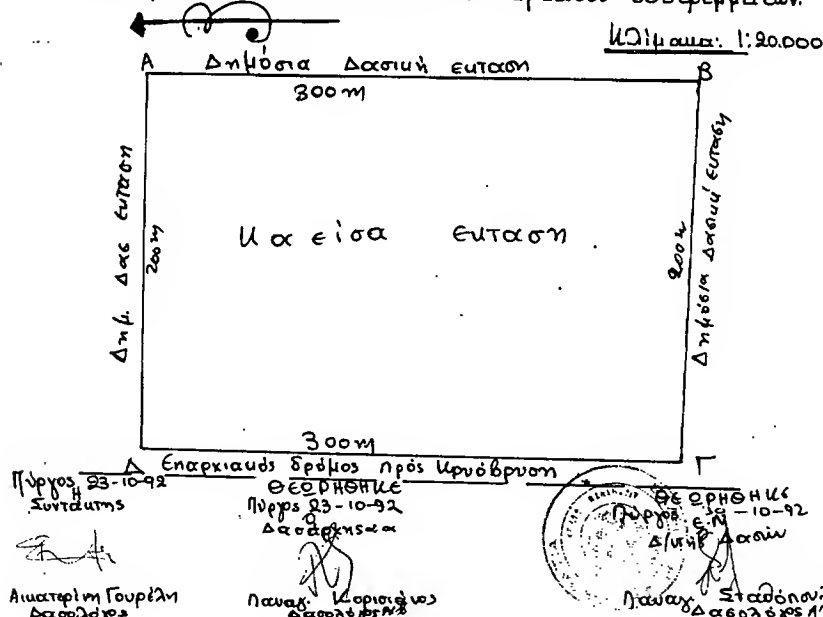 Κλίμακα: 1:20.000
Α Δημόσια Δασική εκταση Β
300 m
Δημ. Δας εκταση
200 m
Καείσα εκταση
200 m
Δημόσια Δασική εκταση
300 m
Δ Επαρχιακός δρόμος πρός Κρυόβρυση Γ
Πύργος 23-10-92
Η
Συντάκτης
Αικατερίνη Γουρέλη
Δασολόγος
ΘΕΩΡΗΘΗΚΕ
Πύργος 23-10-92
Ο
Δασάρχης
Παναγ.
Δασολόγος
ΘΕΩΡΗΘΗΚΕ
Πύργος -10-92
Δ/ντής Δασών
Παναγ.
Δασολόγος